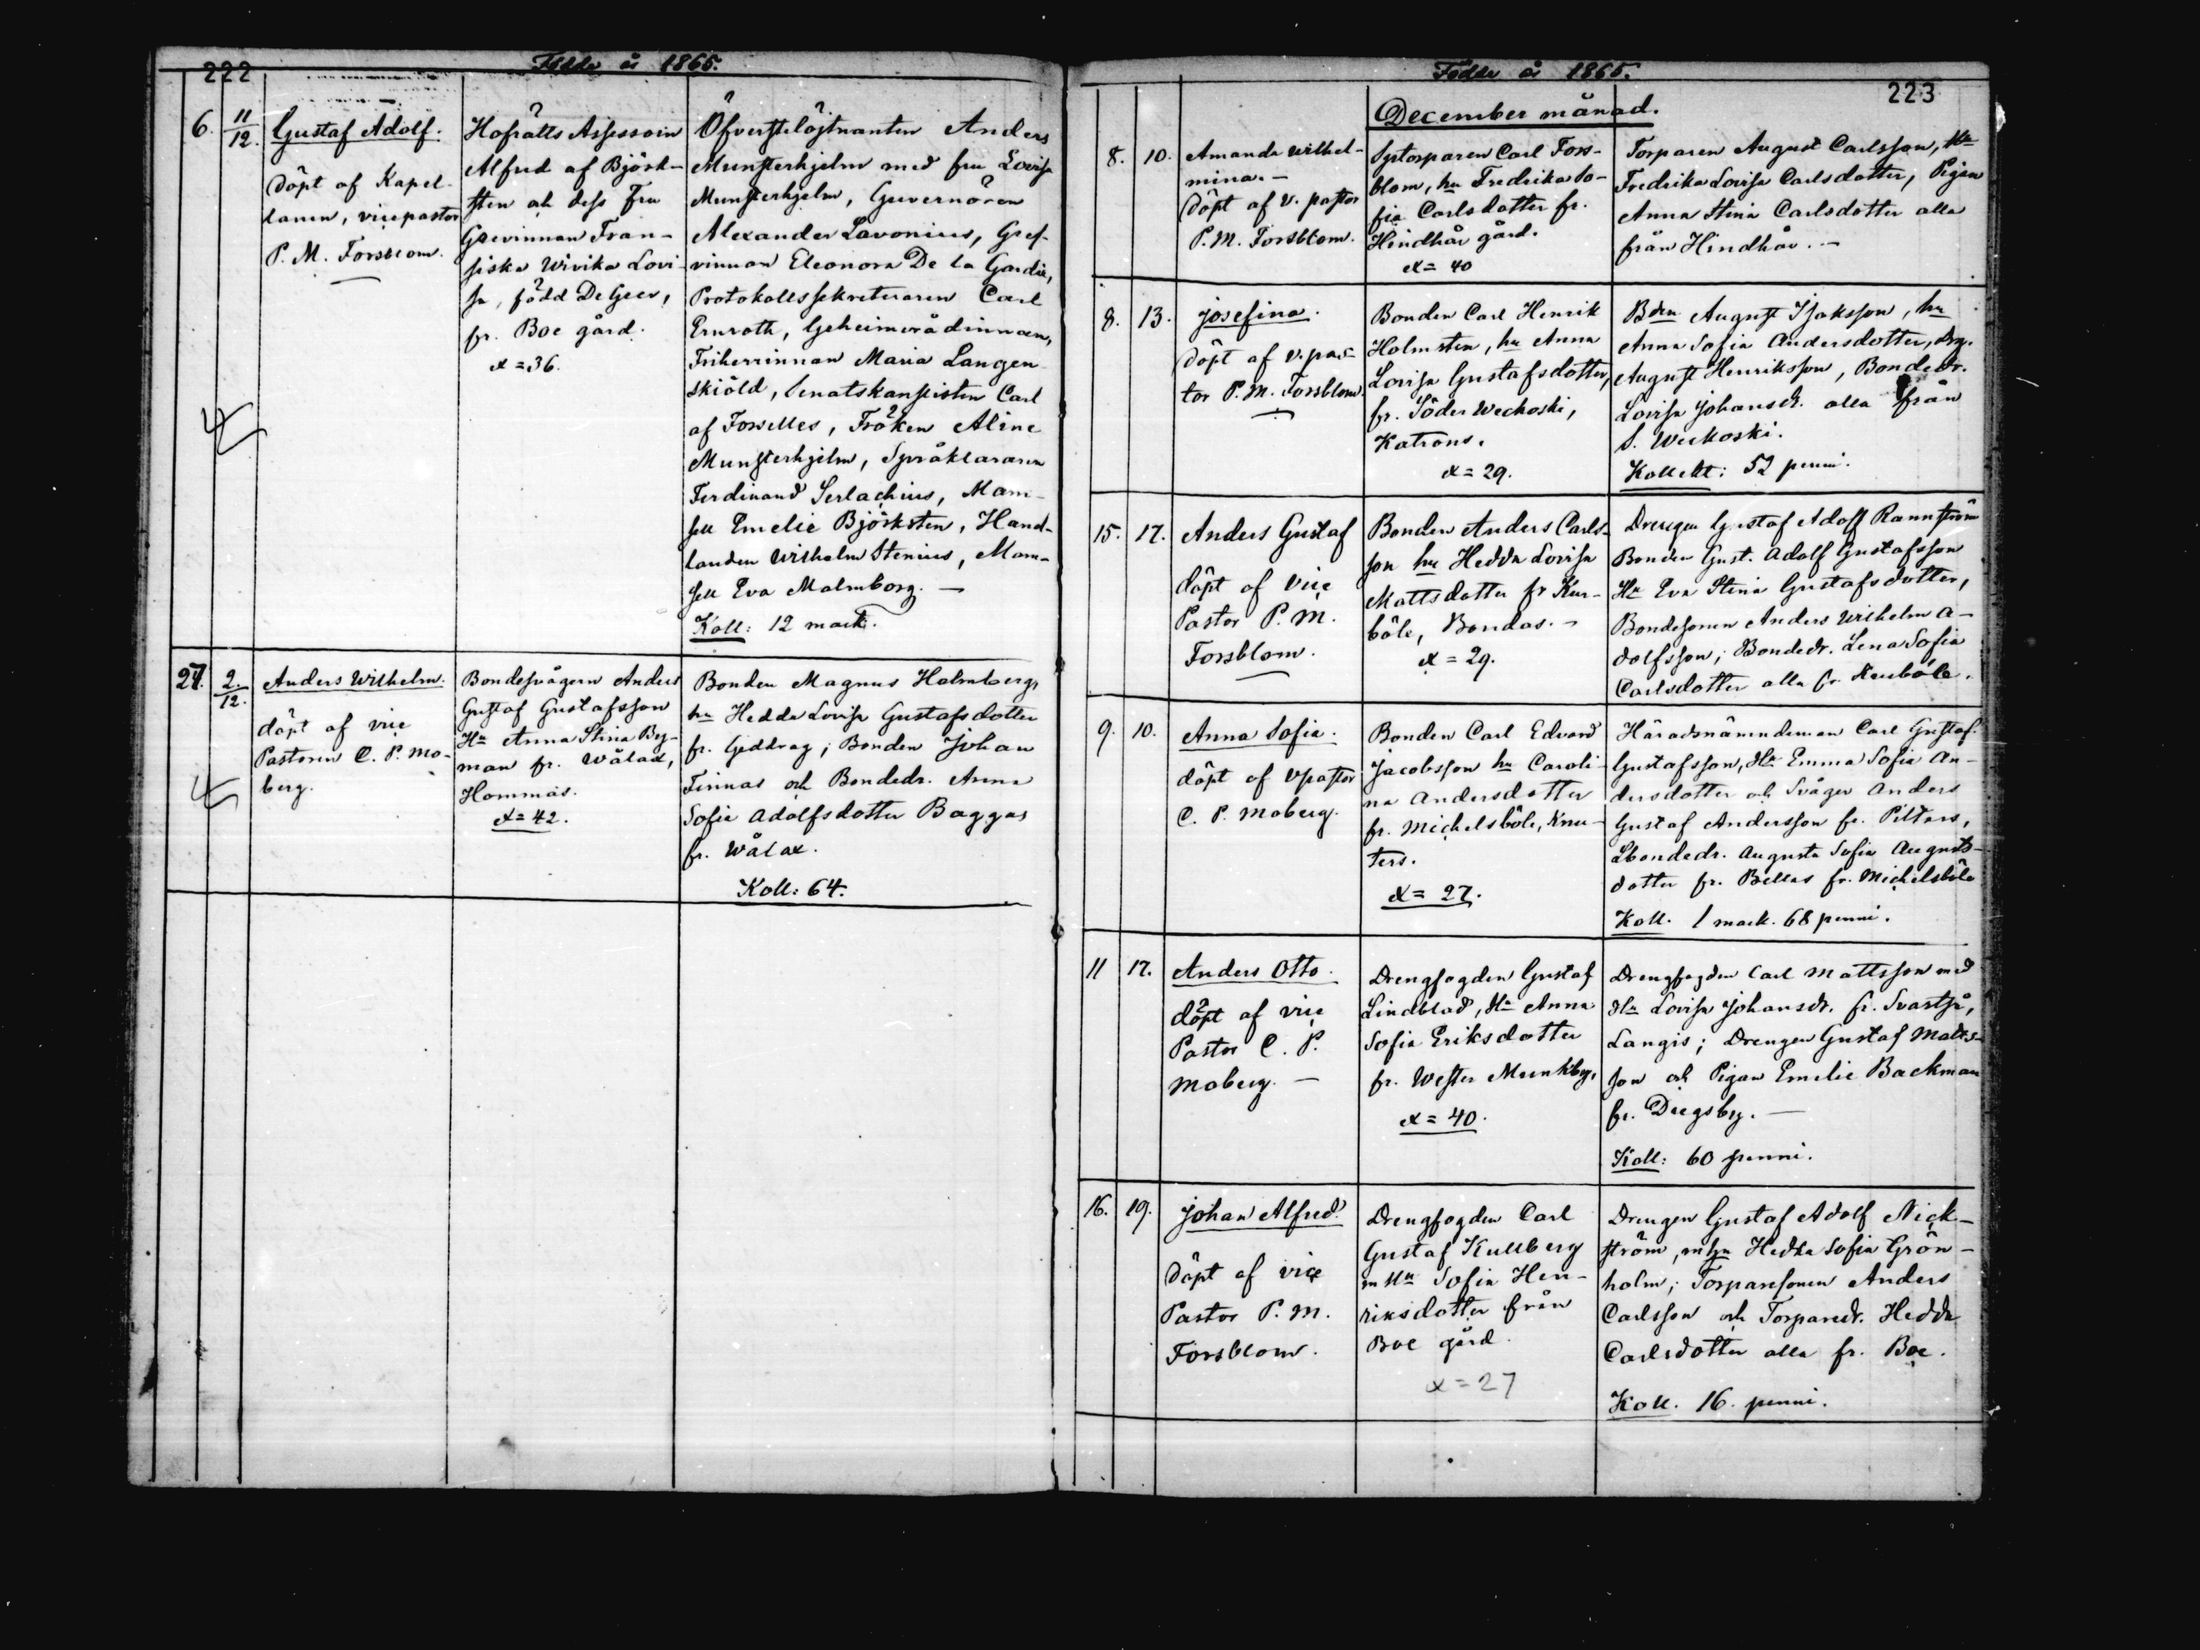 222
Födde år 1865.
6. 11/12. Gustaf Adolf.
döpt af Kapel-
lanen, vicepastor
P. M. Forsblom.
Hofrätts Assessorn
Alfred af Björk-
sten och dess Fru
Grevinnan Fran-
siska Wivika Lovi-
sa, född De Geer,
fr. Boe gård.
x = 36.
Öfverstelöjtnanten Anders
Munsterhjelm med fru Lovisa
Munsterhjelm, Guvernören
Alexander Lavonius, Gref-
vinnan Eleonora De la Gardie,
Protokollssekreteraren Carl
Ernroth, Geheimerådinnan,
Friherrinnan Maria Langen-
skiöld, Senatskanslisten Carl
af Forselles, Fröken Aline
Munsterhjelm, Språkläraren
Ferdinand Serlachius, Mam-
sell Emelie Björksten, Hand-
landen Wilhelm Stenius, Mam-
sell Eva Malmborg. —
Koll: 12 mark.
27. 2/12. Anders Wilhelm.
döpt af vice
Pastoren C. P. Mo-
berg.
Bondesvågern Anders
Gustaf Gustafsson
Hu Anna Stina By-
man fr. Wålax,
Hommas.
x = 42.
Bonden Magnus Holmberg,
hu Hedda Lovisa Gustafsdotter
fr. Geddrag; Bonden Johan
Finnas och Bondedr. Anna
Sofia Adolfsdotter Baggas
fr. Wålax.
Koll: 64.
Födde år 1865.
223
December månad.
8. 10. Amanda Wilhel-
mina. —
döpt af v. pastor
P. M. Forsblom.
Sytorparen Carl Fors-
blom, hu Fredrika So-
fia Carlsdotter fr.
Hindhår gård.
x = 40
Torparen August Carlsson, Hu
Fredrika Lovisa Carlsdotter, Pigan
Anna Stina Carlsdotter alla
från Hindhår. —
8. 13. Josefina.
döpt af v. pas-
tor P. M. Forsblom.
Bonden Carl Henrik
Holmsten, hu Anna
Lovisa Gustafsdotter,
fr. Söder Weckoski,
Katrons.
x = 29.
Bden August Isaksson, hu
Anna Sofia Andersdotter, Drg.
August Henriksson, Bondedr.
Lovisa Johansdr. alla från
S. Weckoski.
Kollekt: 52 penni.
15. 17. Anders Gustaf
döpt af Vice
Pastor P. M.
Forsblom.
Bonden Anders Carls-
son hu Hedda Lovisa
Mattsdotter fr Kur-
böle, Bondas. —
x = 29.
Drengen Gustaf Adolf Rannström
Bonden Gust. Adolf Gustafsson
Hu Eva Stina Gustafsdotter,
Bondesonen Anders Wilhelm A-
dolfsson; Bondedr. Lena Sofia
Carlsdotter alla fr Kurböle.
9. 10. Anna Sofia.
döpt af vpastor
C. P. Moberg.
Bonden Carl Edvard
Jacobsson hu Caroli-
na Andersdotter
fr. Michelsböle, Knu-
ters.
x = 27.
Häradsnämndeman Carl Gustaf
Gustafsson, Hu Emma Sofia An-
dersdotter och Svåger Anders
Gustaf Andersson fr. Pilters,
Lbondedr. Augusta Sofia Augusts-
dotter fr. Bellas fr. Michelsböle
Koll. 1 mark. 68 penni.
11 17. Anders Otto.
döpt af vice
Pastor C. P.
Moberg. —
Drengfogden Gustaf
Lindblad, Hu Anna
Sofia Eriksdotter
fr. Wester Munkby.
x = 40.
Drengfogden Carl Mattsson med
Hu Lovisa Johansdr. fr. Svartså,
Langis; Drengen Gustaf Matts-
son och Pigan Emilie Backman
fr. Dregsby. —
Koll: 60 penni.
16. 19. Johan Alfred.
Döpt af vice
Pastor P. M.
Forsblom.
Drengfogden Carl
Gustaf Kullberg
m Hu Sofia Hen-
riksdotter från
Boe gård.
x = 27
Drengen Gustaf Adolf Nick-
ström, m hu Hedda Sofia Grön-
holm; Torparesonen Anders
Carlsson och Torparedr. Hedda
Carlsdotter alla fr. Boe.
Koll. 16. penni.